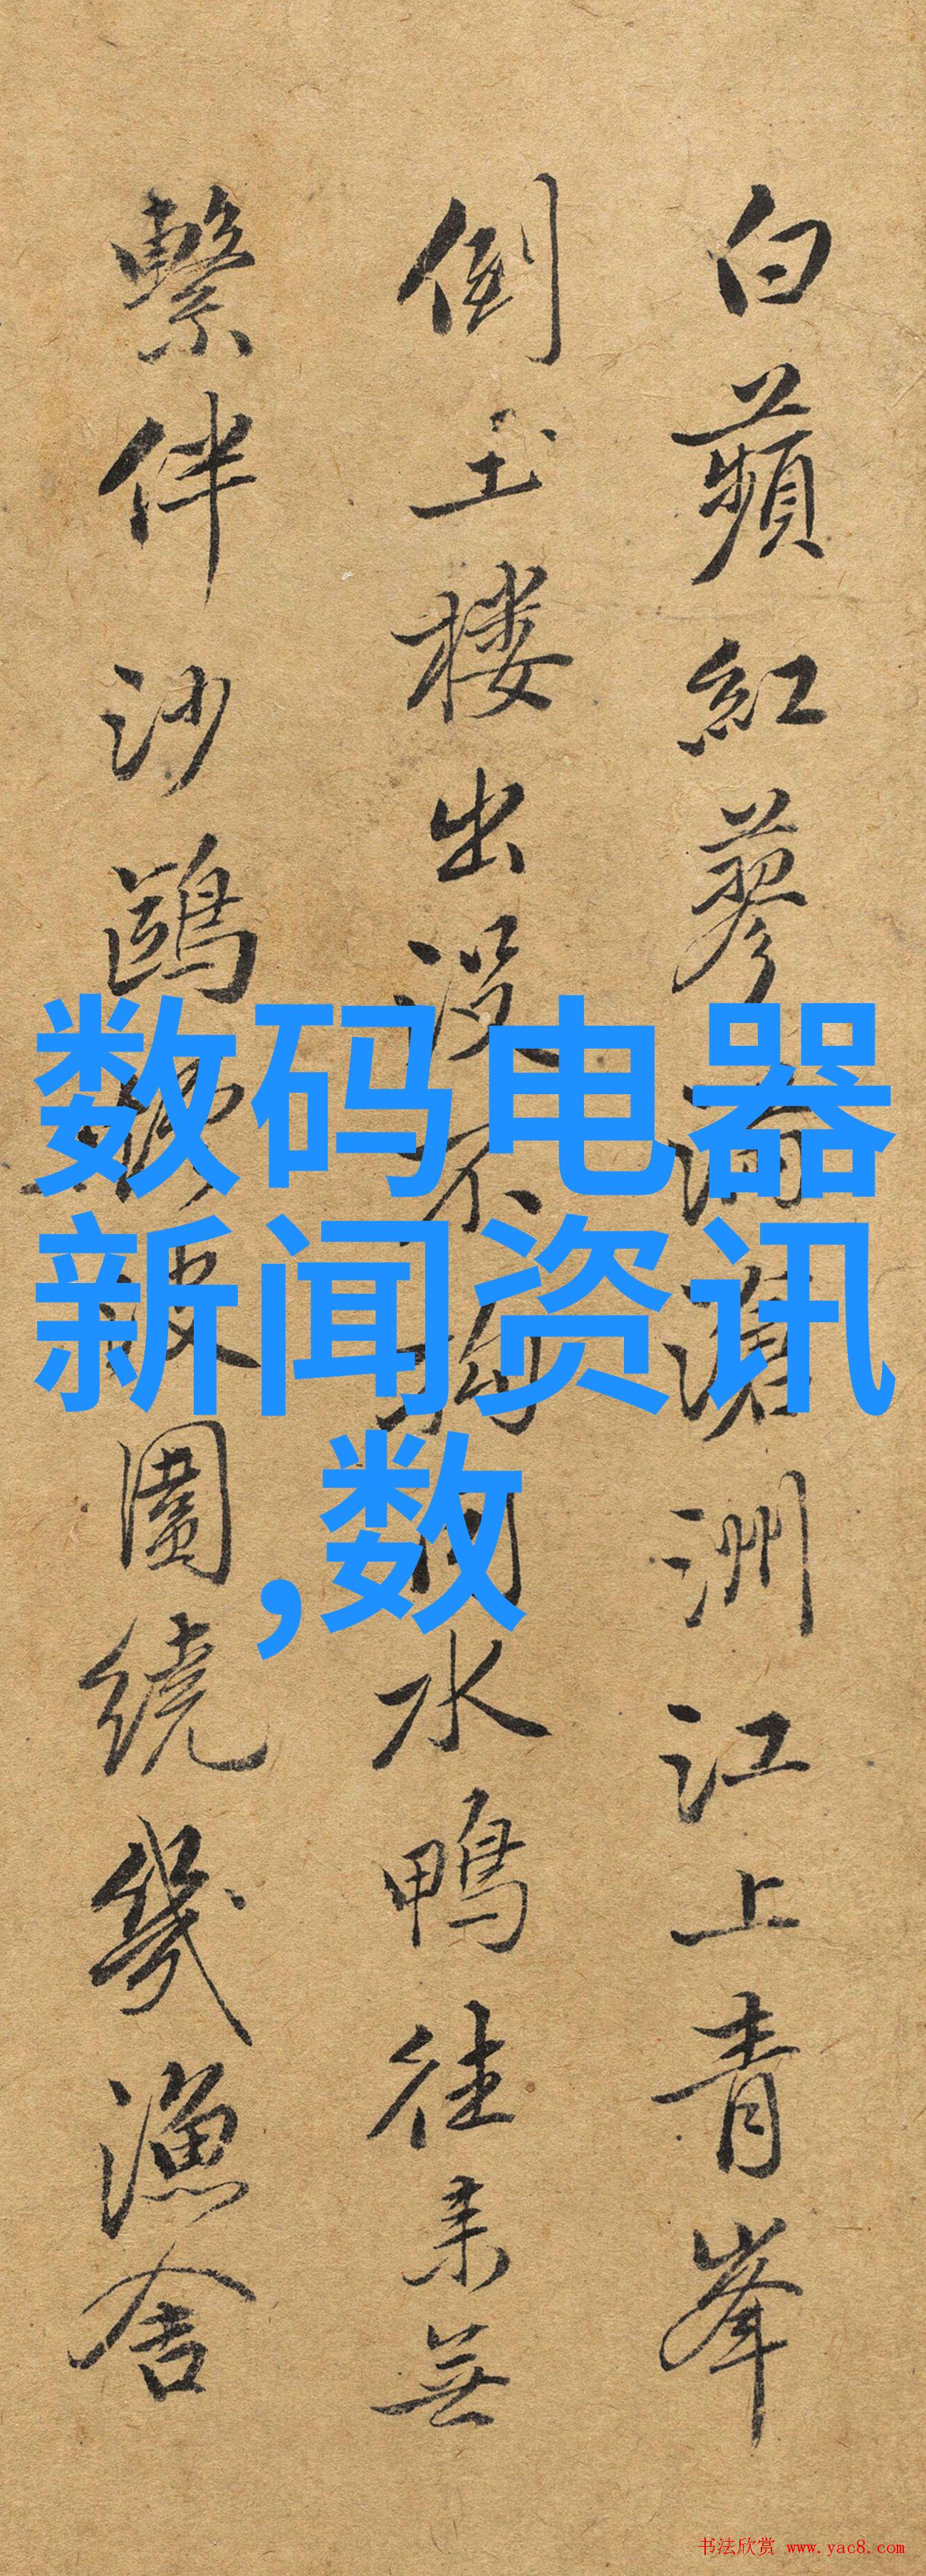 白蘋紅蓼滿滄洲江上青峯
倒玉楼出没不水鴨往来無
繫伴沙鷗波圍繞幾漁舍
数码电器
新闻资讯
,数
书法欣赏 www.yac8.com